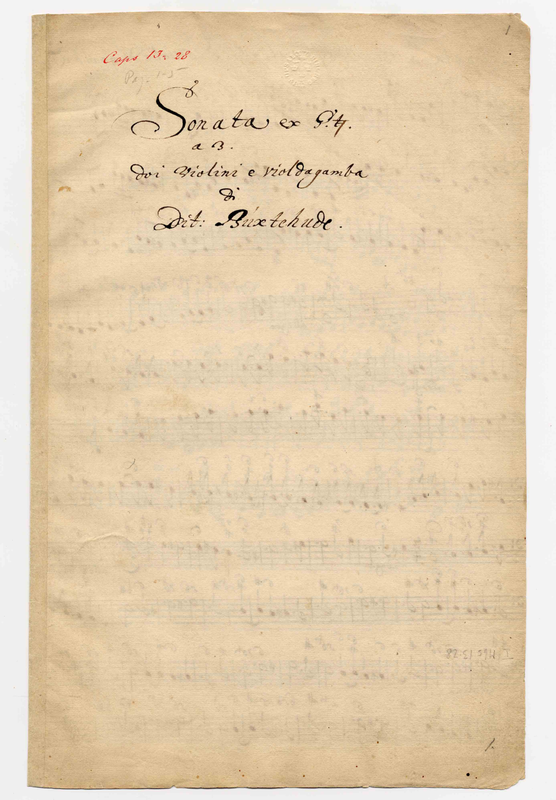 1
Caps 13:28
Sonata ex G♮.
a 3.
doi Violini e Violdagamba
di
Dit: Buxtehude.
1.